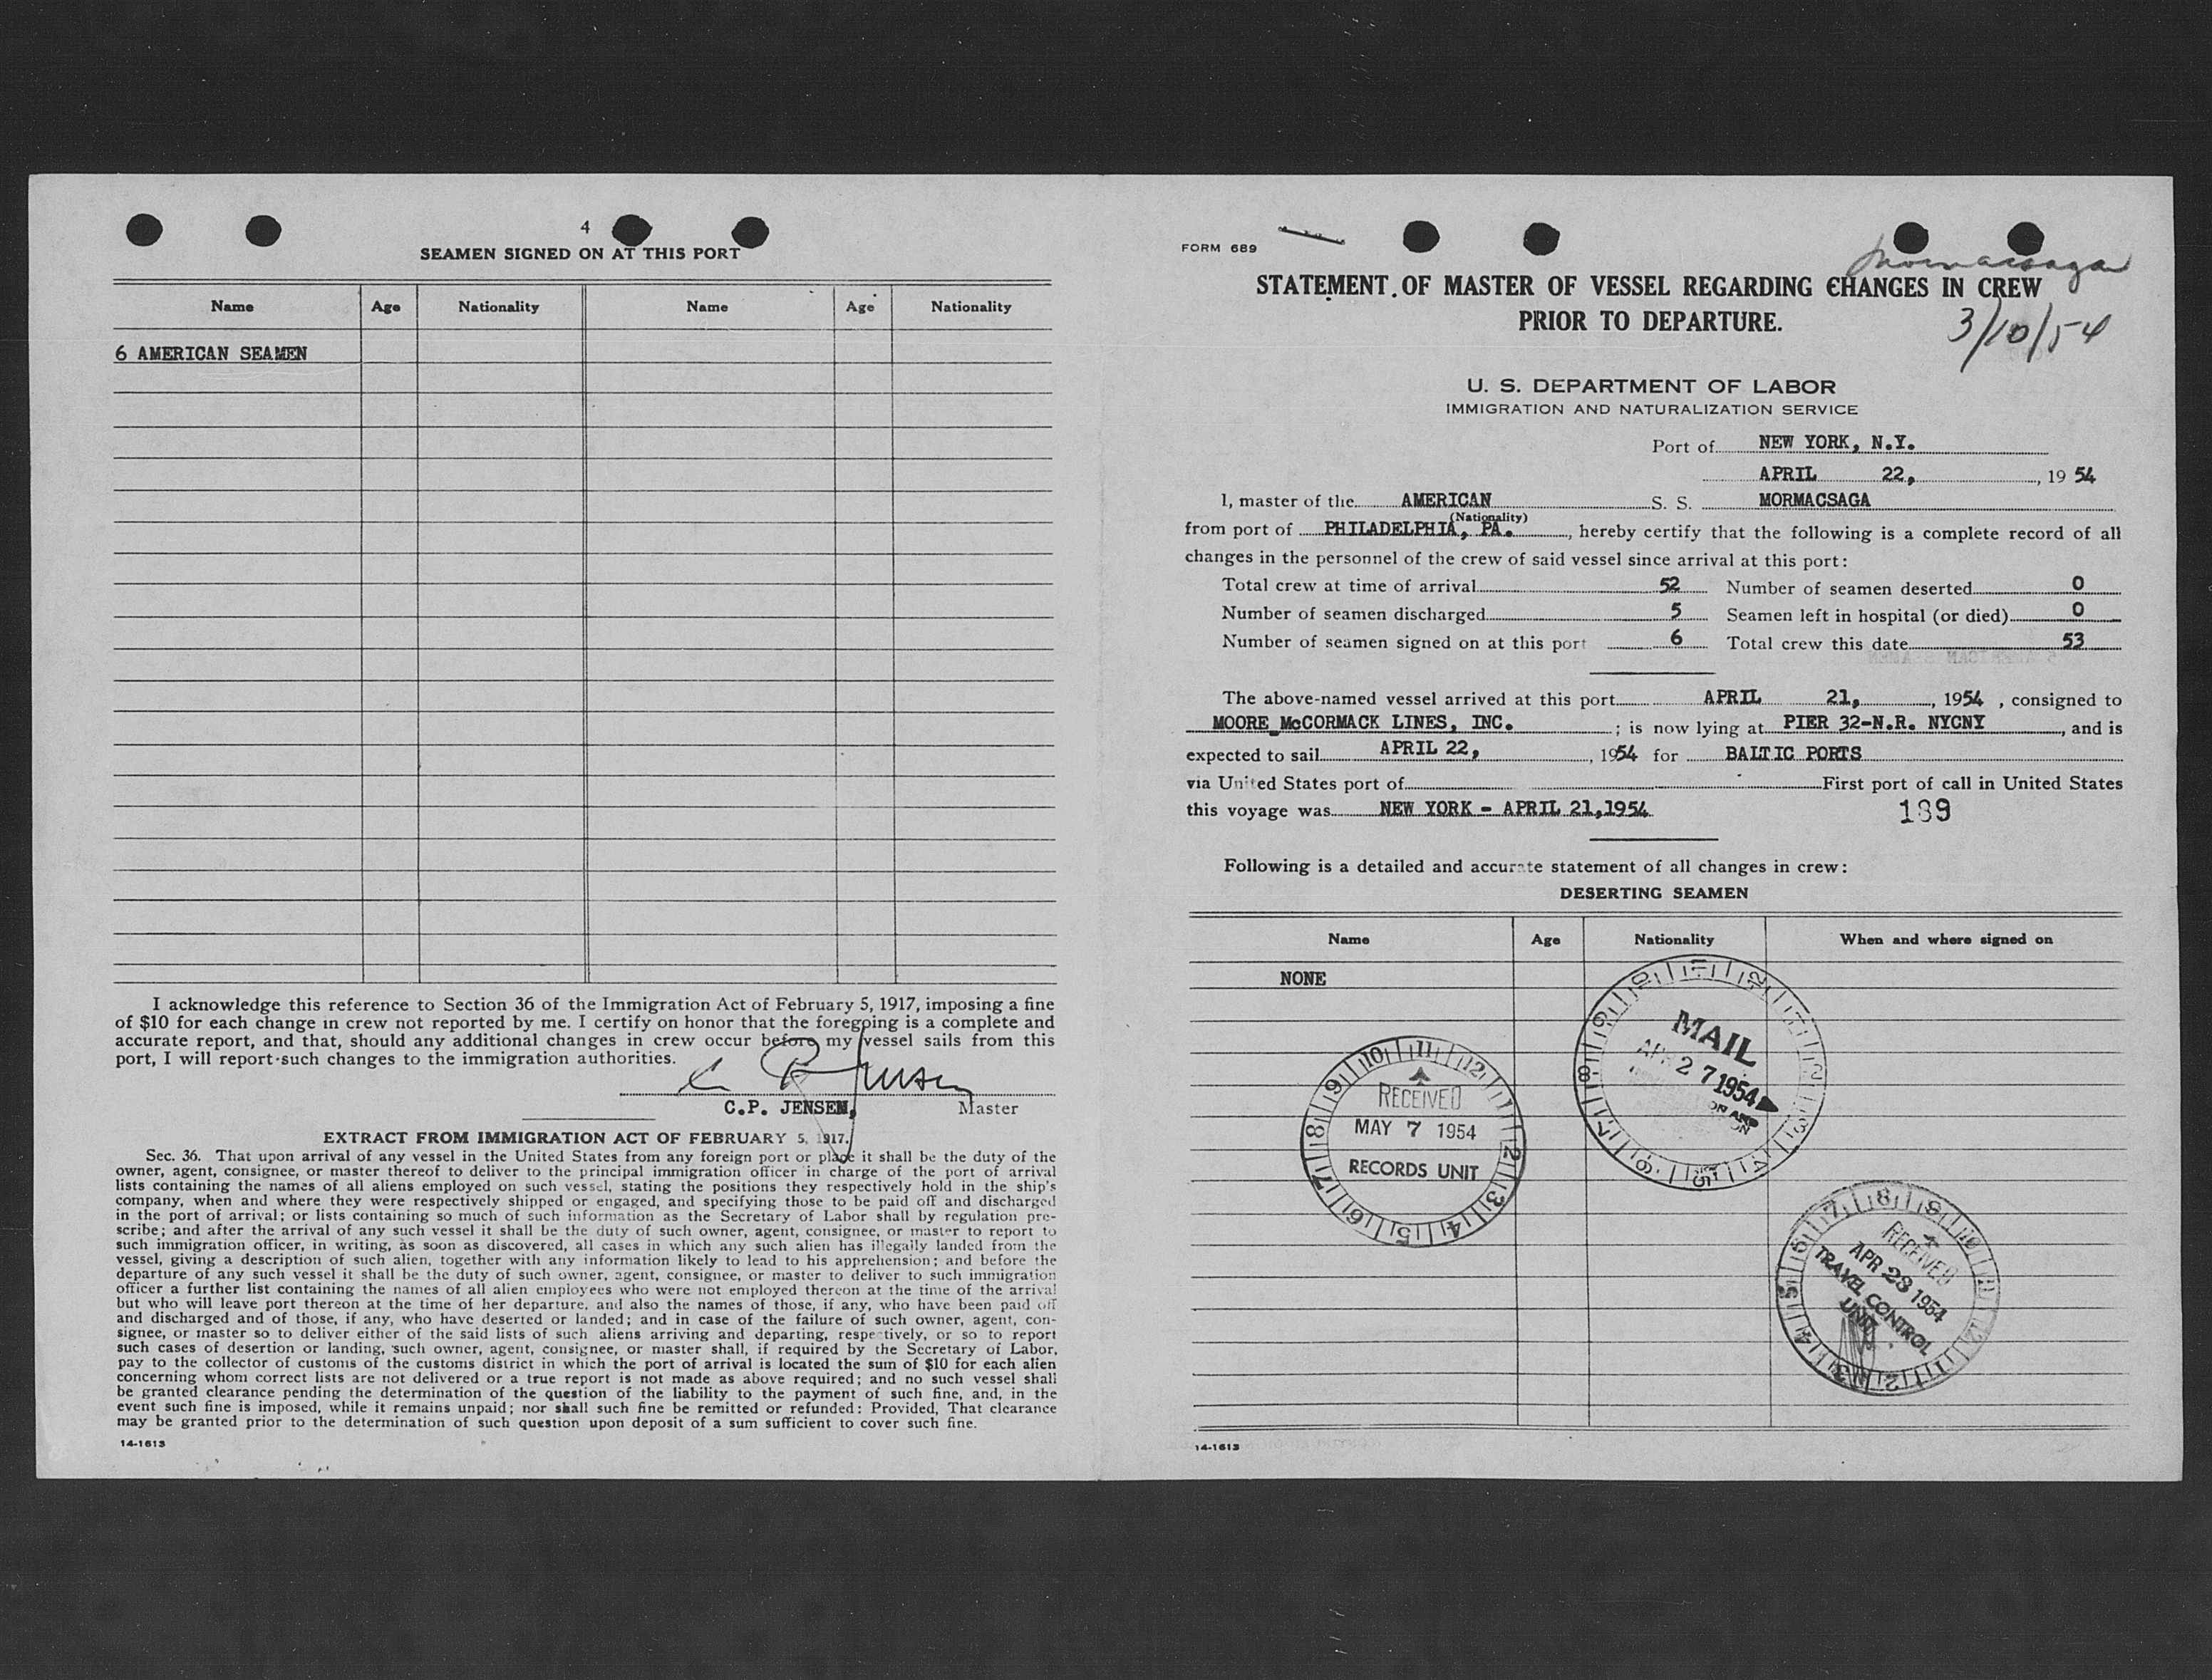 4
SEAMEN SIGNED ON AT THIS PORT
Name Age Nationality Name Age Nationality
6 AMERICAN SEAMEN
I acknowledge this reference to Section 36 of the Immigration Act of February 5, 1917, imposing a fine
of $10 for each change in crew not reported by me. I certify on honor that the foregoing is a complete and
accurate report, and that, should any additional changes in crew occur before my vessel sails from this
port, I will report such changes to the immigration authorities.
C.P. JENSEN, Master
EXTRACT FROM IMMIGRATION ACT OF FEBRUARY 5, 1917.
Sec. 36. That upon arrival of any vessel in the United States from any foreign port or place it shall be the duty of the
owner, agent, consignee, or master thereof to deliver to the principal immigration officer in charge of the port of arrival
lists containing the names of all aliens employed on such vessel, stating the positions they respectively hold in the ship's
company, when and where they were respectively shipped or engaged, and specifying those to be paid off and discharged
in the port of arrival; or lists containing so much of such information as the Secretary of Labor shall by regulation pre-
scribe; and after the arrival of any such vessel it shall be the duty of such owner, agent, consignee, or master to report to
such immigration officer, in writing, as soon as discovered, all cases in which any such alien has illegally landed from the
vessel, giving a description of such alien, together with any information likely to lead to his apprehension; and before the
departure of any such vessel it shall be the duty of such owner, agent, consignee, or master to deliver to such immigration
officer a further list containing the names of all alien employees who were not employed thereon at the time of the arrival
but who will leave port thereon at the time of her departure, and also the names of those, if any, who have been paid off
and discharged and of those, if any, who have deserted or landed; and in case of the failure of such owner, agent, con-
signee, or master so to deliver either of the said lists of such aliens arriving and departing, respectively, or so to report
such cases of desertion or landing, such owner, agent, consignee, or master shall, if required by the Secretary of Labor,
pay to the collector of customs of the customs district in which the port of arrival is located the sum of $10 for each alien
concerning whom correct lists are not delivered or a true report is not made as above required; and no such vessel shall
be granted clearance pending the determination of the question of the liability to the payment of such fine, and, in the
event such fine is imposed, while it remains unpaid; nor shall such fine be remitted or refunded: Provided, That clearance
may be granted prior to the determination of such question upon deposit of a sum sufficient to cover such fine.
14-1613
FORM 689
Mormacsaga
STATEMENT OF MASTER OF VESSEL REGARDING CHANGES IN CREW
PRIOR TO DEPARTURE.
3/10/54
U. S. DEPARTMENT OF LABOR
IMMIGRATION AND NATURALIZATION SERVICE
Port of NEW YORK, N.Y.
APRIL 22, , 1954
I, master of the AMERICAN S. S. MORMACSAGA
(Nationality)
from port of PHILADELPHIA, PA. , hereby certify that the following is a complete record of all
changes in the personnel of the crew of said vessel since arrival at this port:
Total crew at time of arrival 52 Number of seamen deserted 0
Number of seamen discharged 5 Seamen left in hospital (or died) 0
Number of seamen signed on at this port 6 Total crew this date 53
The above-named vessel arrived at this port APRIL 21, , 1954 , consigned to
MOORE McCORMACK LINES, INC. ; is now lying at PIER 32-N.R. NYCNY , and is
expected to sail APRIL 22, , 1954 for BALTIC PORTS
via United States port of First port of call in United States
this voyage was NEW YORK - APRIL 21,1954
189
Following is a detailed and accurate statement of all changes in crew:
DESERTING SEAMEN
Name Age Nationality When and where signed on
NONE
MAIL
APR 27 1954
RECEIVED
MAY 7 1954
RECORDS UNIT
RECEIVED
APR 28 1954
TRAVEL CONTROL
UNIT
14-1613